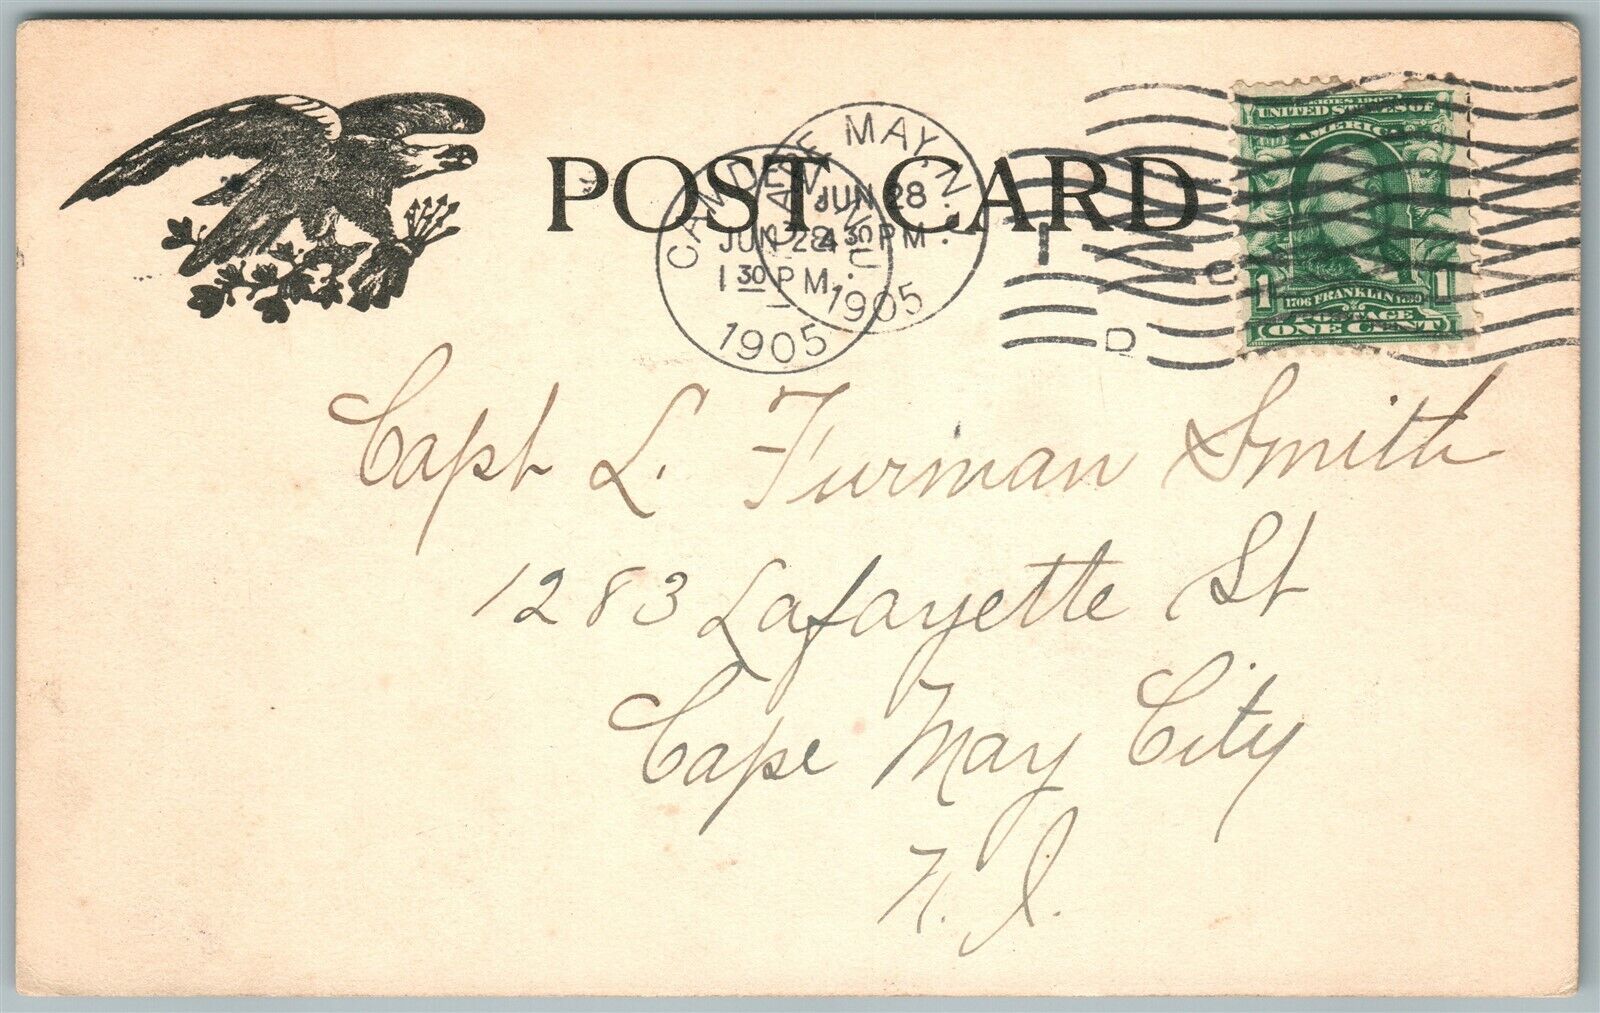 POST CARD
CAMDEN, N.J.
JUN 28
1 30 PM
1905
CAPE MAY, N.J.
JUN 28
4 30 PM
1905
1
D
C
SERIES 1902
UNITED STATES OF
AMERICA
1706 FRANKLIN 1790
1 1
POSTAGE
ONE CENT
Capt L. Furman Smith
1283 Lafayette St
Cape May City
N. J.